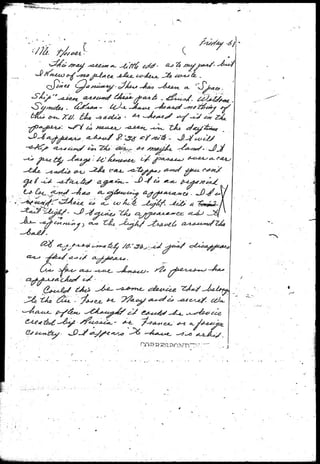 Friday 6/
Mr. Hoover
This may seem a little odd. as to my part. but
I Know of no place else where to write.
Since January There has been a "Space
Ship" seen around these parts.
Symdes. We have heard nothing of
this on T.V. the radio. or heard of it in the
papers. It is never seen in the daytime.
I appears about 8:30 at nite. It will
skip around in the air, or maybe land. It
is pretty large. Whenever it passes over a car
the radio or the car stops, and you can't
get it started again. It is an
to be, and has a glowing appearance. It is
round. There is a white light, like a
tail light. It gives the appearance as to
be spinning, as the light travels around the
ball.
At approximately 10:30, it just disappears
as fast as it appears.
As far as we know. No person has
approached it.
Could this be some device that belongs
to the Air Force or Navy and is secret. We
have often thought it could be a device
created by Russia or France or a foreign
country. It appears to have no
CORRESPONDENCE